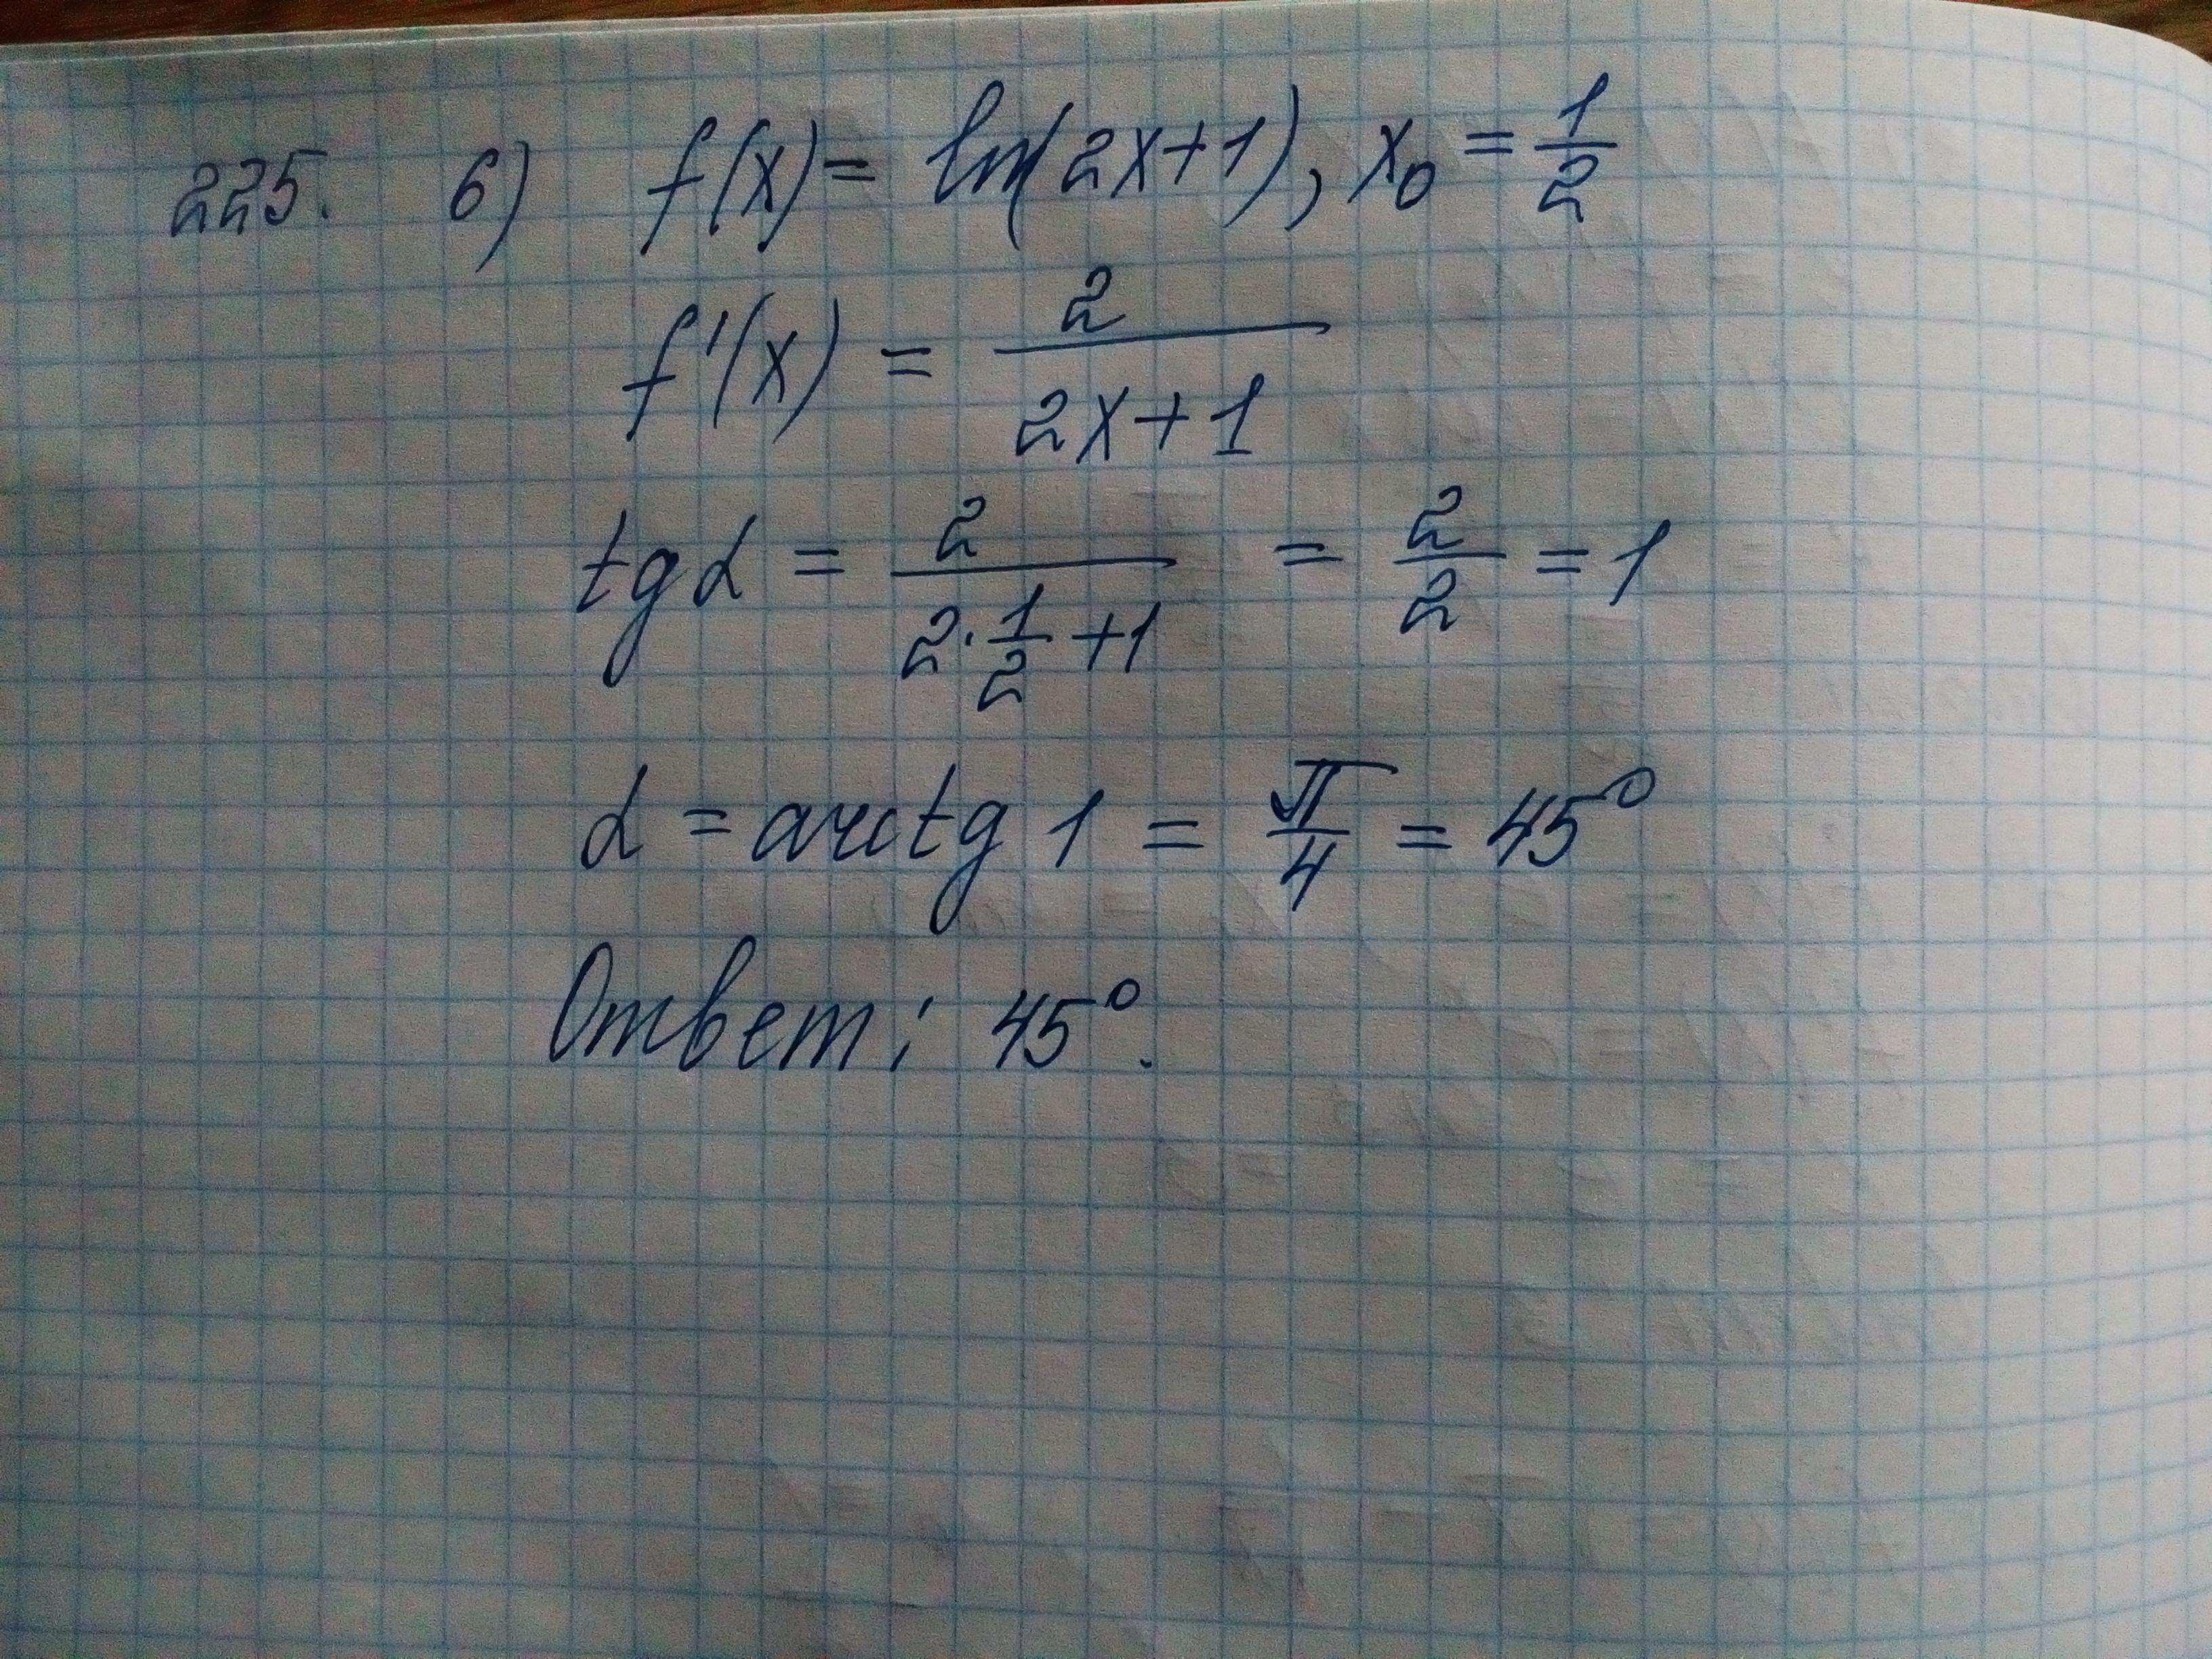 225. 6) f(x) = ln(2x+1), x₀ = 1/2
f'(x) = 2/(2x+1)
tg α = 2/(2·1/2+1) = 2/2 = 1
α = arctg 1 = π/4 = 45°
Ответ: 45°.